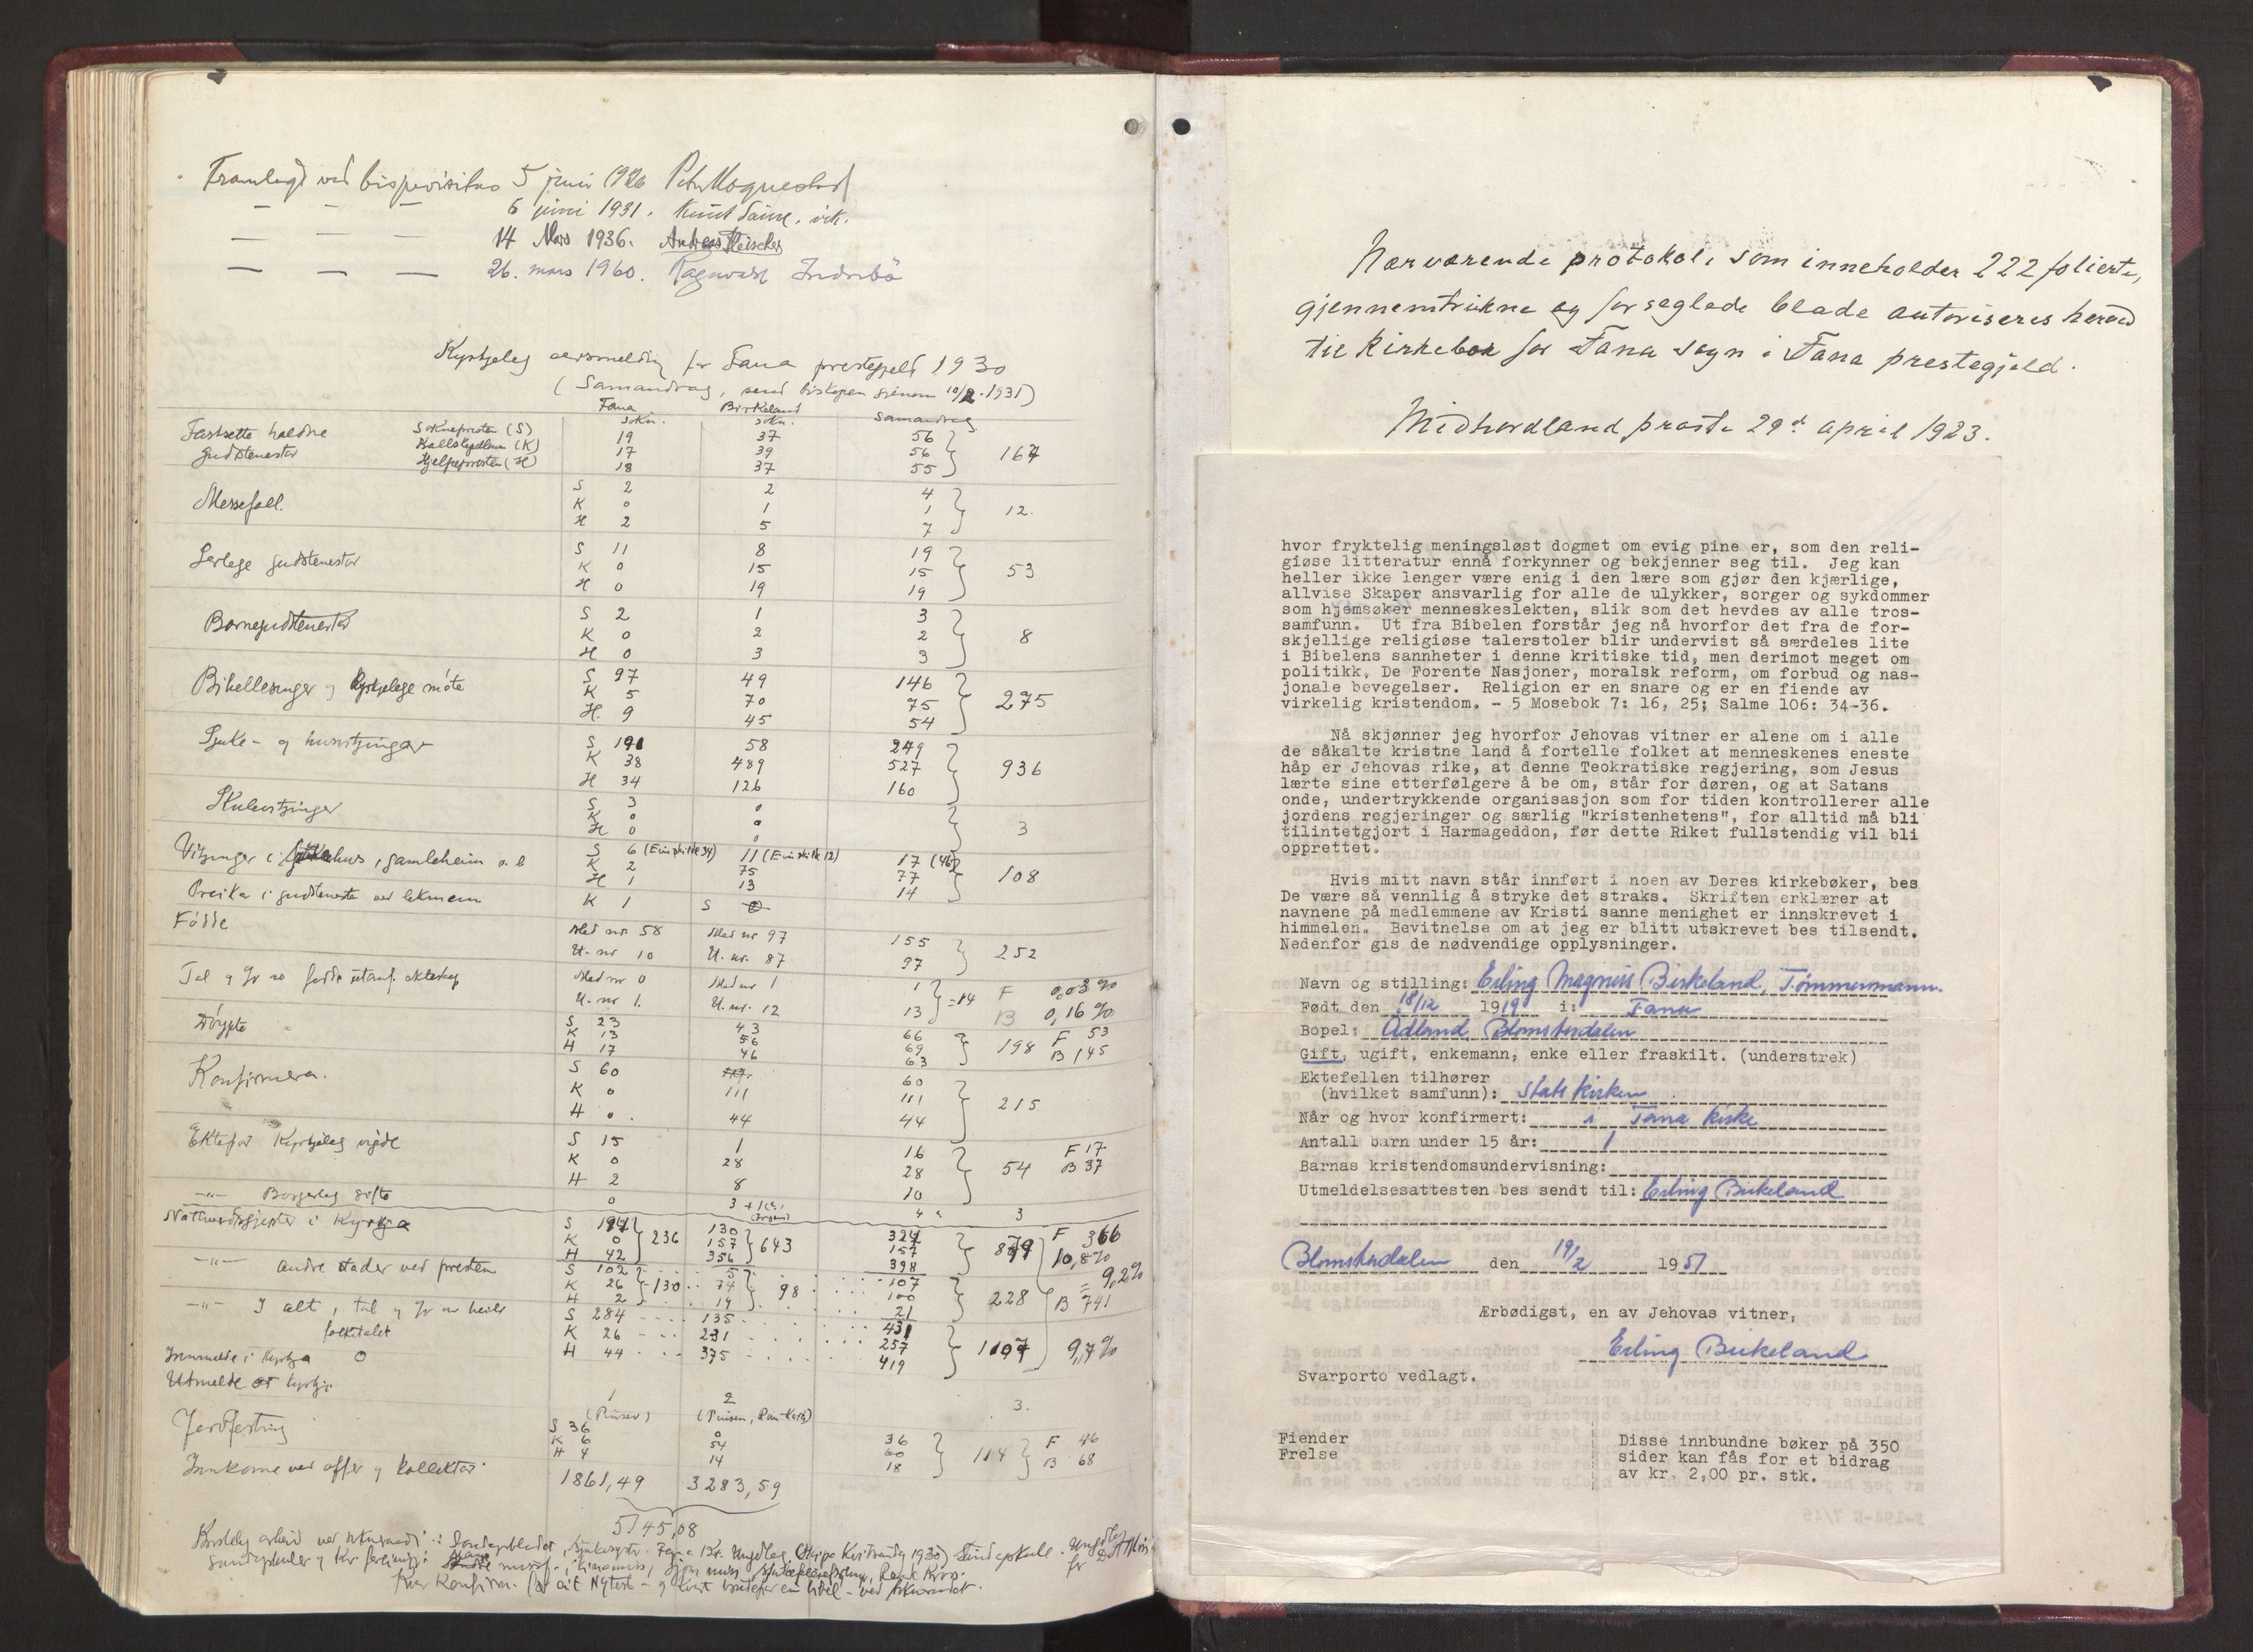 Framlagt ved bispevisitas 5 juni 1926 Peter Hognestad
— — — 6 juni 1931. Knut
— — — 14 Mars 1936. Andreas Fleischer
— — — 26. mars 1960. Ragnvald Indrebö
Kyrkjeleg aarsmelding for Fana prestegjeld 1930
(Samandrag, send biskopen 10/2. 1931)
Fana sokn. Birkeland sokn. Samandrag
Fastsette haldne gudstenester Soknepresten (S) 19 37 56
Kallskapellanen (K) 17 39 56 167
Hjelpepresten (H) 18 37 55
Messefall. S 2 2 4
K 0 1 1 12.
H 2 5 7
Serlege gudstenester S 11 8 19
K 0 15 15 53
H 0 19 19
Barnegudstenester S 2 1 3
K 0 2 2 8
H 0 3 3
Bibellesninger og kyrkjelege möte S 97 49 146
K 5 70 75 275
H. 9 45 54
Sjuke- og husvitjingar S 191 58 249
K 38 489 527 936
H 34 126 160
Skulevitjingar S 3 0
K 0 0 3
H 0 0
Vitjingar i sjukehus, gamleheim o. l S 6 (Einskilte 34) 11 (Einskilte 12) 17 (46)
K 2 75 77 108
H 1 13 14
Preika i gudsteneste ved lekmenn K 1 S 0
Födde Med nr. 58 Med nr 97 155
U. nr 10 U. nr. 87 97 252
Tal og % av födde utanf. ekteskap Med nr 0 Med nr 1 1 =14 F 0,03 %
U. nr 1. U. nr. 12 13 B 0,16 %
Döypte S 23 43 66 F 53
K 13 56 69 198 B 145
H 17 46 63
Konfirmera. S 60 60
K 0 111 111 215
H 0. 44 44
Ektepar Kyrkjeleg vigde S 15 1 16 F 17
K 0 28 28 54 B 37
H 2 8 10
—"— Borgarleg gifte 0 3 + 1 4 3
Nattverdsgjester i Kyrkja S 194 130 324 F 366
K 0 236 157 643 157 879 10,8 %
H 42 356 398
—"— andre stader ved presten S 102 5 107 = 9,2 %
K 26 130 74 98 100 228 B 741
H 2 19 21
—"— I alt, tal og % av heile folketalet S 284 135 431
K 26 231 257 1107 9,7 %
H 44 375 419
Innmelde i Kyrkja 0
Utmelde or kyrkja 1 2 3.
(Pinsev) (Pinsev, Rom-Kat)
Jordfesting S 36 0 36 F 46
K 6 54 60 114 B 68
H 4 14 18
Innkome ved offer og kollektar 1861,49 3283,59
5145,08
Kristeleg arbeid ved sokneraadi: Søndagsbladet, Sjukesyster. Fana Kr. Ungdlag (Skipa Kvitsundag 1930) Sundagskule.
sundagskular og kr foreiningar
Kvar Konfirm. fær eit Nytest – og kvart brudepar ein bibel – ved soknerådet.
Nærværende protokol, som inneholder 222 folierte,
gjennemtrukne og forseglede blade autoriseres herved
til kirkebok for Fana sogn i Fana prestegjeld.
Midhordland prosti 29d april 1923.
hvor fryktelig meningsløst dogmet om evig pine er, som den reli-
giøse litteratur ennå forkynner og bekjenner seg til. Jeg kan
heller ikke lenger være enig i den lære som gjør den kjærlige,
allvise Skaper ansvarlig for alle de ulykker, sorger og sykdommer
som hjemsøker menneskeslekten, slik som det hevdes av alle tros-
samfunn. Ut fra Bibelen forstår jeg nå hvorfor det fra de for-
skjellige religiøse talerstoler blir undervist så særdeles lite
i Bibelens sannheter i denne kritiske tid, men derimot meget om
politikk, De Forente Nasjoner, moralsk reform, om forbud og nas-
jonale bevegelser. Religion er en snare og er en fiende av
virkelig kristendom. - 5 Mosebok 7: 16, 25; Salme 106: 34-36.
Nå skjønner jeg hvorfor Jehovas vitner er alene om i alle
de såkalte kristne land å fortelle folket at menneskenes eneste
håp er Jehovas rike, at denne Teokratiske regjering, som Jesus
lærte sine etterfølgere å be om, står for døren, og at Satans
onde, undertrykkende organisasjon som for tiden kontrollerer alle
jordens regjeringer og særlig "kristenhetens", for alltid må bli
tilintetgjort i Harmageddon, før dette Riket fullstendig vil bli
opprettet.
Hvis mitt navn står innført i noen av Deres kirkebøker, bes
De være så vennlig å stryke det straks. Skriften erklærer at
navnene på medlemmene av Kristi sanne menighet er innskrevet i
himmelen. Bevitnelse om at jeg er blitt utskrevet bes tilsendt.
Nedenfor gis de nødvendige opplysninger.
Navn og stilling: Erling Magnus Birkeland, Tømmermann.
Født den 18/12 1919 i: Fana
Bopel: Ådland, Blomsterdalen
Gift, ugift, enkemann, enke eller fraskilt. (understrek)
Ektefellen tilhører
(hvilket samfunn): Statskirken
Når og hvor konfirmert: i Fana kirke
Antall barn under 15 år: 1
Barnas kristendomsundervisning:
Utmeldelsesattesten bes sendt til: Erling Birkeland
Blomsterdalen den 19/2 1951
Ærbødigst, en av Jehovas vitner,
Erling Birkeland
Svarporto vedlagt.
Fiender
Frelse
Disse innbundne bøker på 350
sider kan fås for et bidrag
av kr. 2,00 pr. stk.